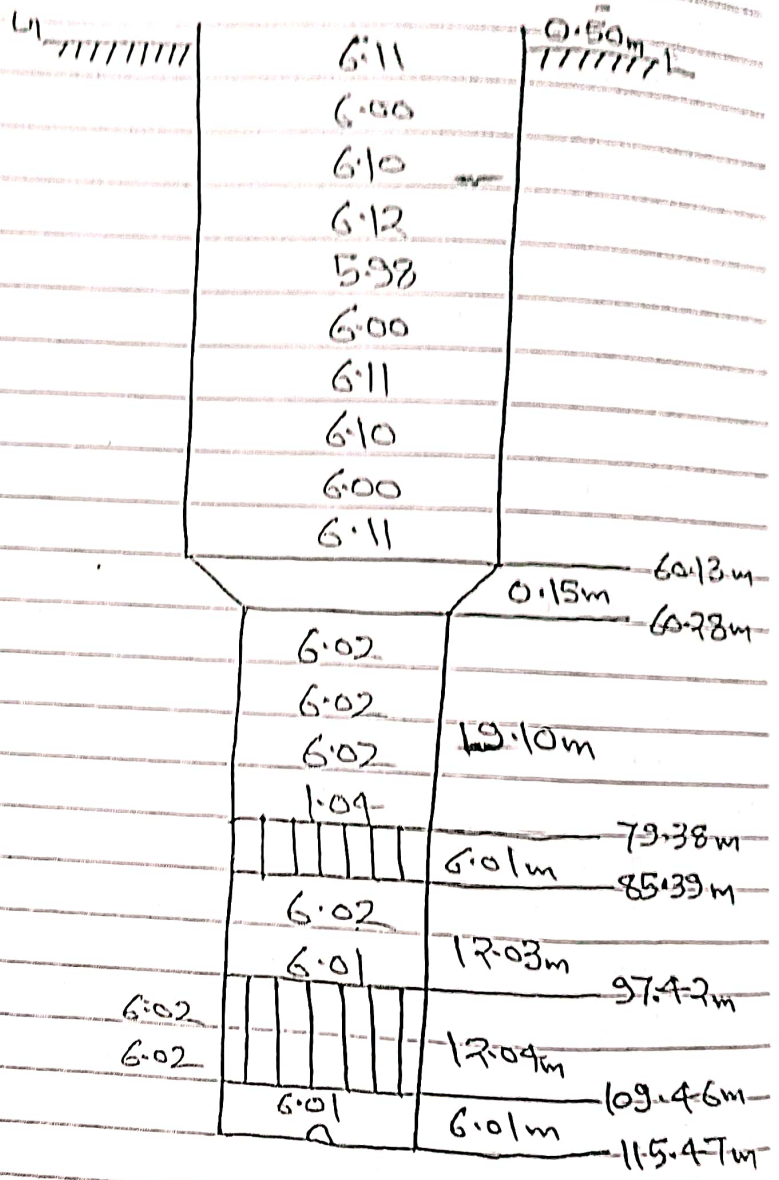 0.50m
6.11
6.00
6.10
6.12
5.98
6.00
6.11
6.10
6.00
6.11
60.13m
0.15m
60.28m
6.02
6.02
6.02
19.10m
1.04
79.38m
6.01m
85.39m
6.02
6.01
12.03m
97.42m
6.02
6.02
12.04m
109.46m
6.01
6.01m
115.47m